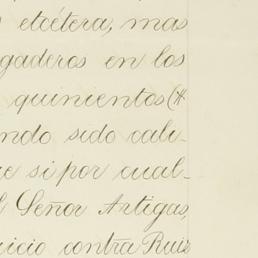 etcétera, mas
gaderos en los
quinientos (#
ndo sido cali-
e si por cual-
l Señor Artigas,
uicio contra Ruiz